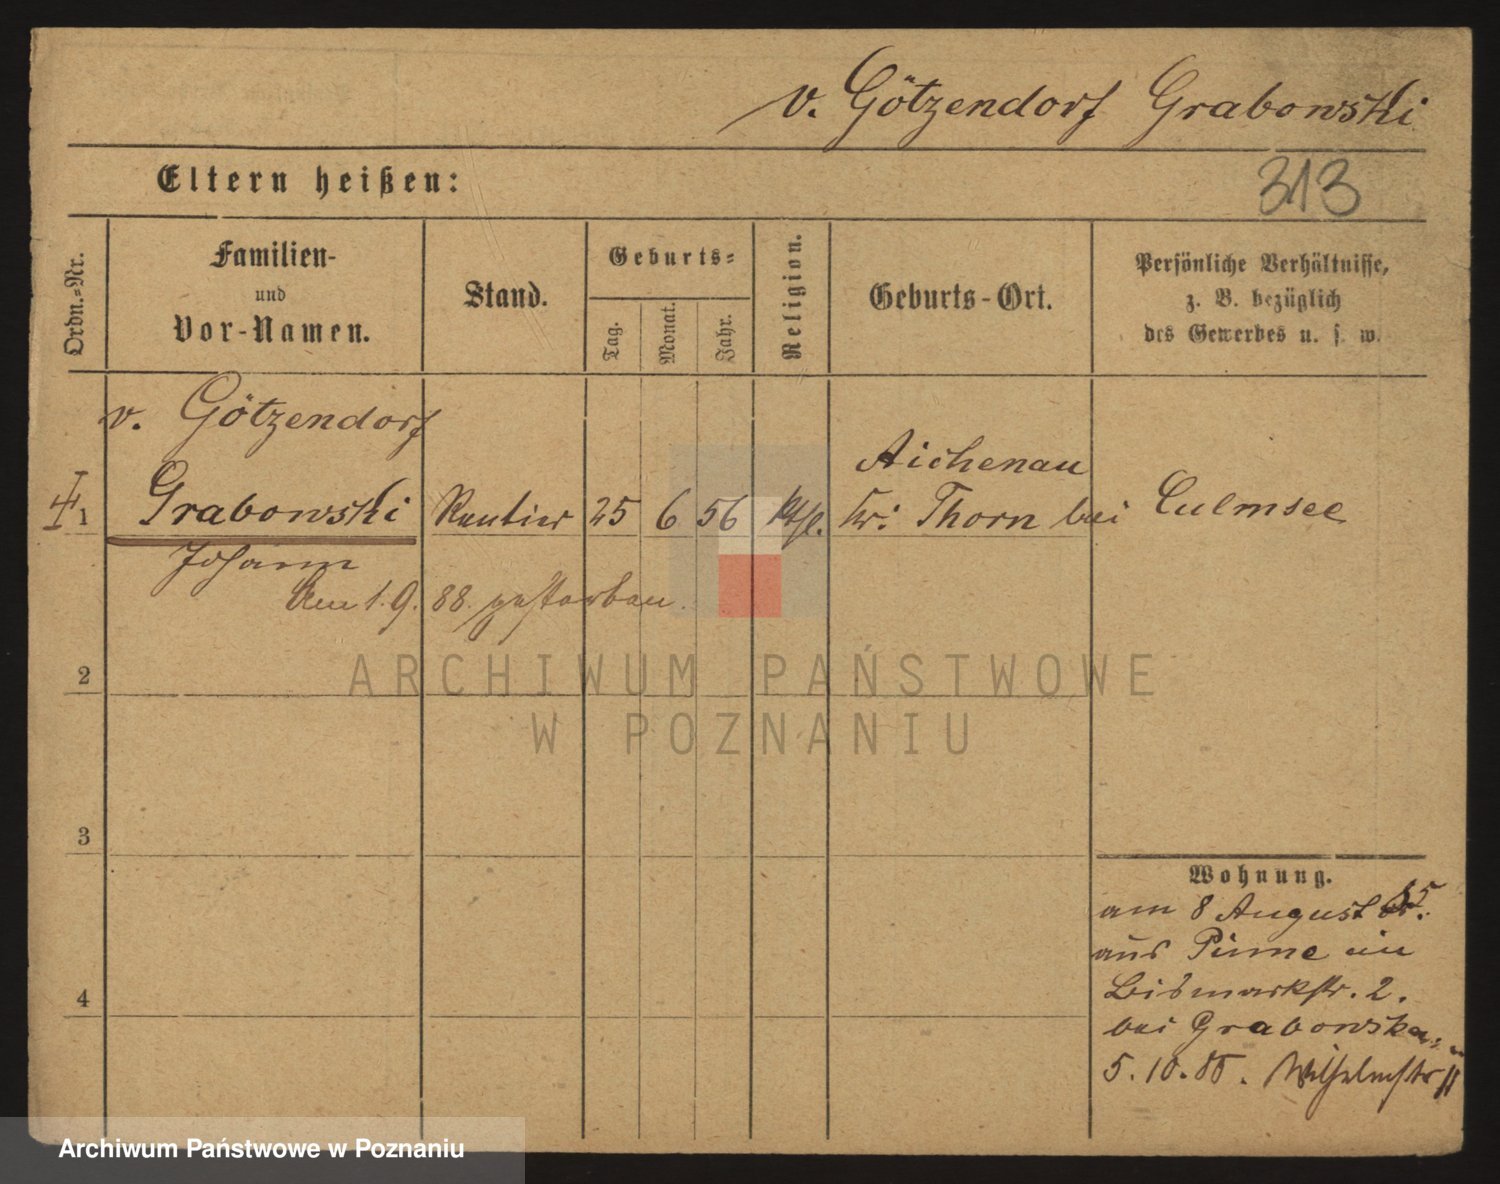 v. Götzendorf Grabowski
Eltern heißen:
313
Ordn.-Nr.
Familien-
und
Vor-Namen.
Stand.
Geburts-
Tag.
Monat.
Jahr.
Religion.
Geburts-Ort.
Persönliche Verhältnisse,
z. B. bezüglich
des Gewerbes u. s. w.
v. Götzendorf
Aichenau
1 Grabowski Rentier 25 6 56 ktl. Kr: Thorn bei Culmsee
Johann
Am 1.9. 88. gestorben.
ARCHIWUM PAŃSTWOWE
W POZNANIU
2
3
Wohnung.
am 8 August 85.
aus Pinne in
Bismarkstr. 2.
bei Grabowska
4
5.10.85. Wilhelmstr 11
Archiwum Państwowe w Poznaniu